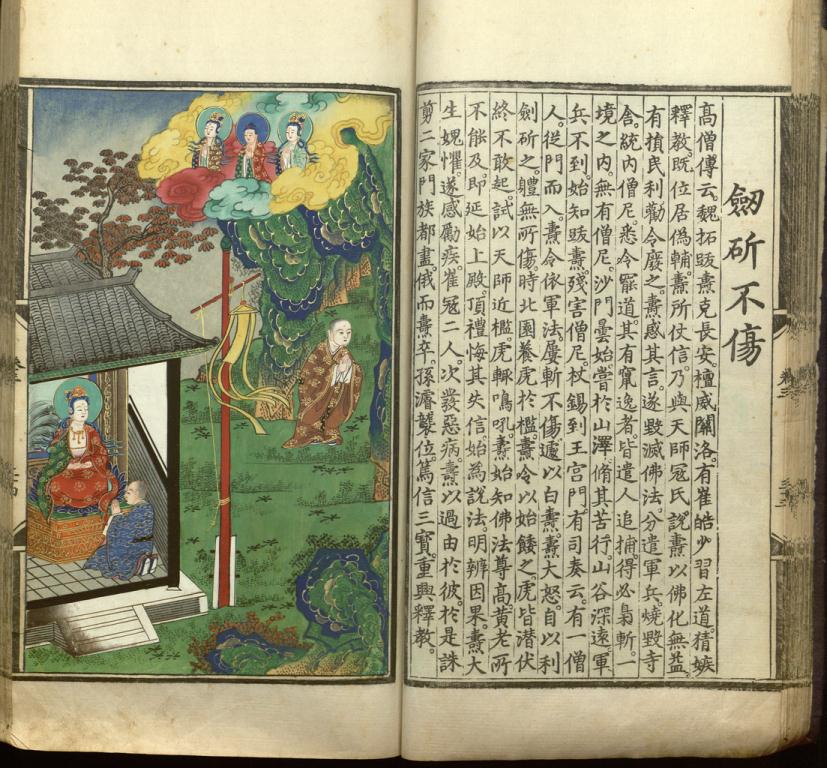 劔斫不傷
高僧傳云。魏拓跋燾克長安。擅威關洛。有崔皓少習左道。猜嫉
釋教。既位居僞輔。燾所仗信。乃與天師冦氏。說燾以佛化無益。
有損民利。勸令廢之。燾惑其言。遂毀滅佛法。分遣軍兵。燒毀寺
舍。統內僧尼。悉令罷道。其有竄逸者。皆遣人追捕。得必梟斬。一
境之內。無有僧尼。沙門曇始。嘗於山澤。脩其苦行。山谷深遠。軍
兵不到。始知跋燾。殘害僧尼。杖錫到王宮門。有司奏云。有一僧
人。從門而入。燾令依軍法。屢斬不傷。遽以白燾。燾大怒。自以利
劍斫之。軆無所傷。時北園養虎於檻。燾令以始餧之。虎皆潛伏
終不敢起。試以天師近檻。虎輒鳴吼。燾始知佛法尊高。黃老所
不能及。即延始上殿。頂禮悔其失信。始為說法。明辨因果。燾大
生愧懼。遂感勵疾。崔冦二人。次發惡病。燾以過由於彼。於是誅
剪二家。門族都盡。俄而燾卒。孫濬襲位。篤信三寶。重興釋教。